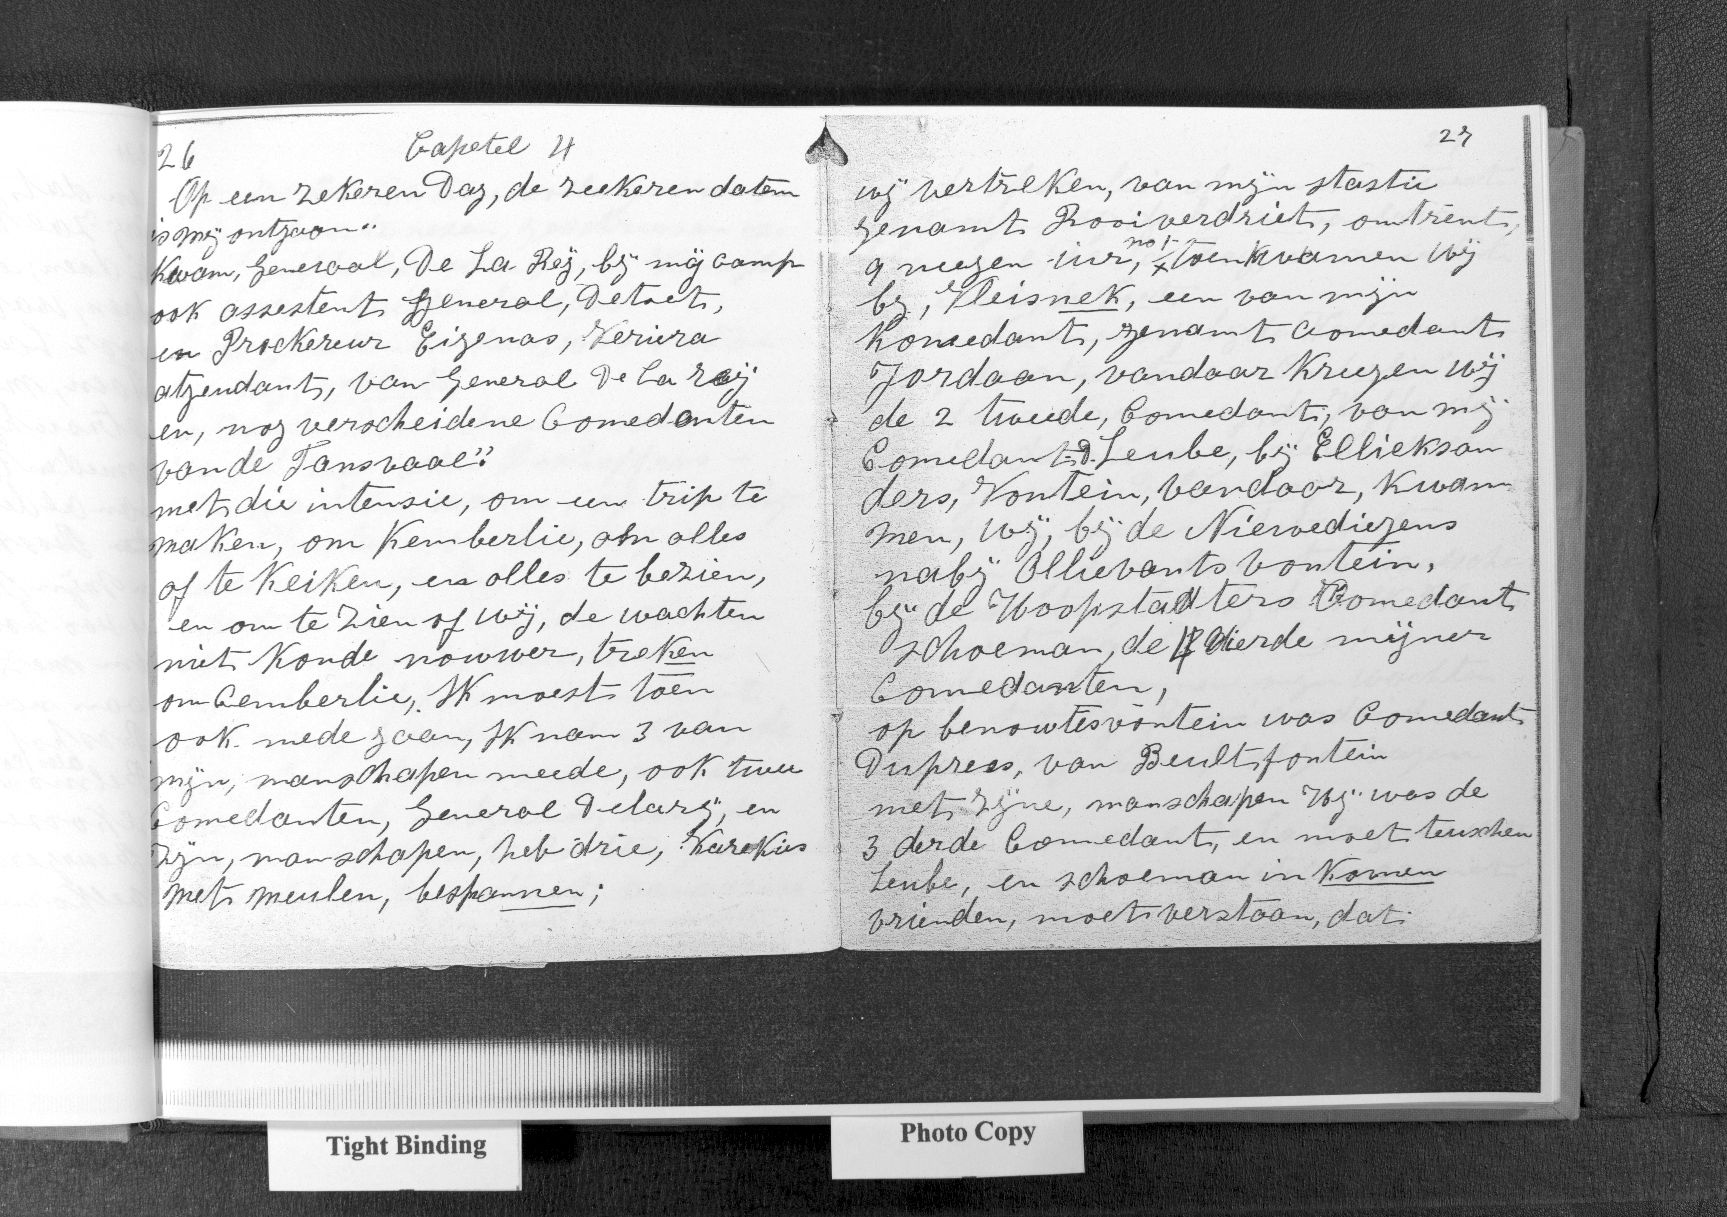 26
Capetel 4
Op een zekeren Dag, de zeekeren datem
is mij ontgaan"
Kwam, Generaal, De La Reÿ, bÿ mÿ camp
ook assestent General, Detoet,
en Prockereur Eigenas, Feriera
atgendant, van General De la Reÿ
en, nog verscheidene Comedanten
van de Tansvaal"
met die intensie, om een trip te
maken, om Kemberlie, om alles
af te Keiken, en alles te bezien,
en om te zien of wÿ, de wachten
niet Konde nouwer, treken
om Cemberlie, Ik moest toen
ook mede gaan, Ik nam 3 van
mÿn, manschapen meede, ook twee
Comedanten, General Delarÿ, en
zÿn, manschapen, heb drie, Karekies
met meulen, bespannen;
27
wÿ vertreken, van mÿn stastie
genamt Rooiverdriet, omtrent,
9 neegen uur, no 1 x toen kwamen wÿ
bÿ, Kleisnek, een van mÿn
Komedant, genamt Comedant
Jordaan, vandaar Kreegen wÿ
de 2 tweede, Comedant, van mÿ
Comedant D. Leube, bÿ Ellieksan
ders, Fontein, vandaar, Kwam
men, wÿ, bÿ de Niewediegens
nabÿ Ollievants vontein,
bÿ de Hoopstadters Comedant
schoeman, de 4 vierde mijner
Comedanten,
op benowtesvontein was Comedant
Duprees, van Beultfontein
met zÿne, manschapen Hÿ was de
3 derde Comedant, en moet teuschen
Leube, en schoeman in Komen
vrienden, moet verstaan, dat
Tight Binding
Photo Copy